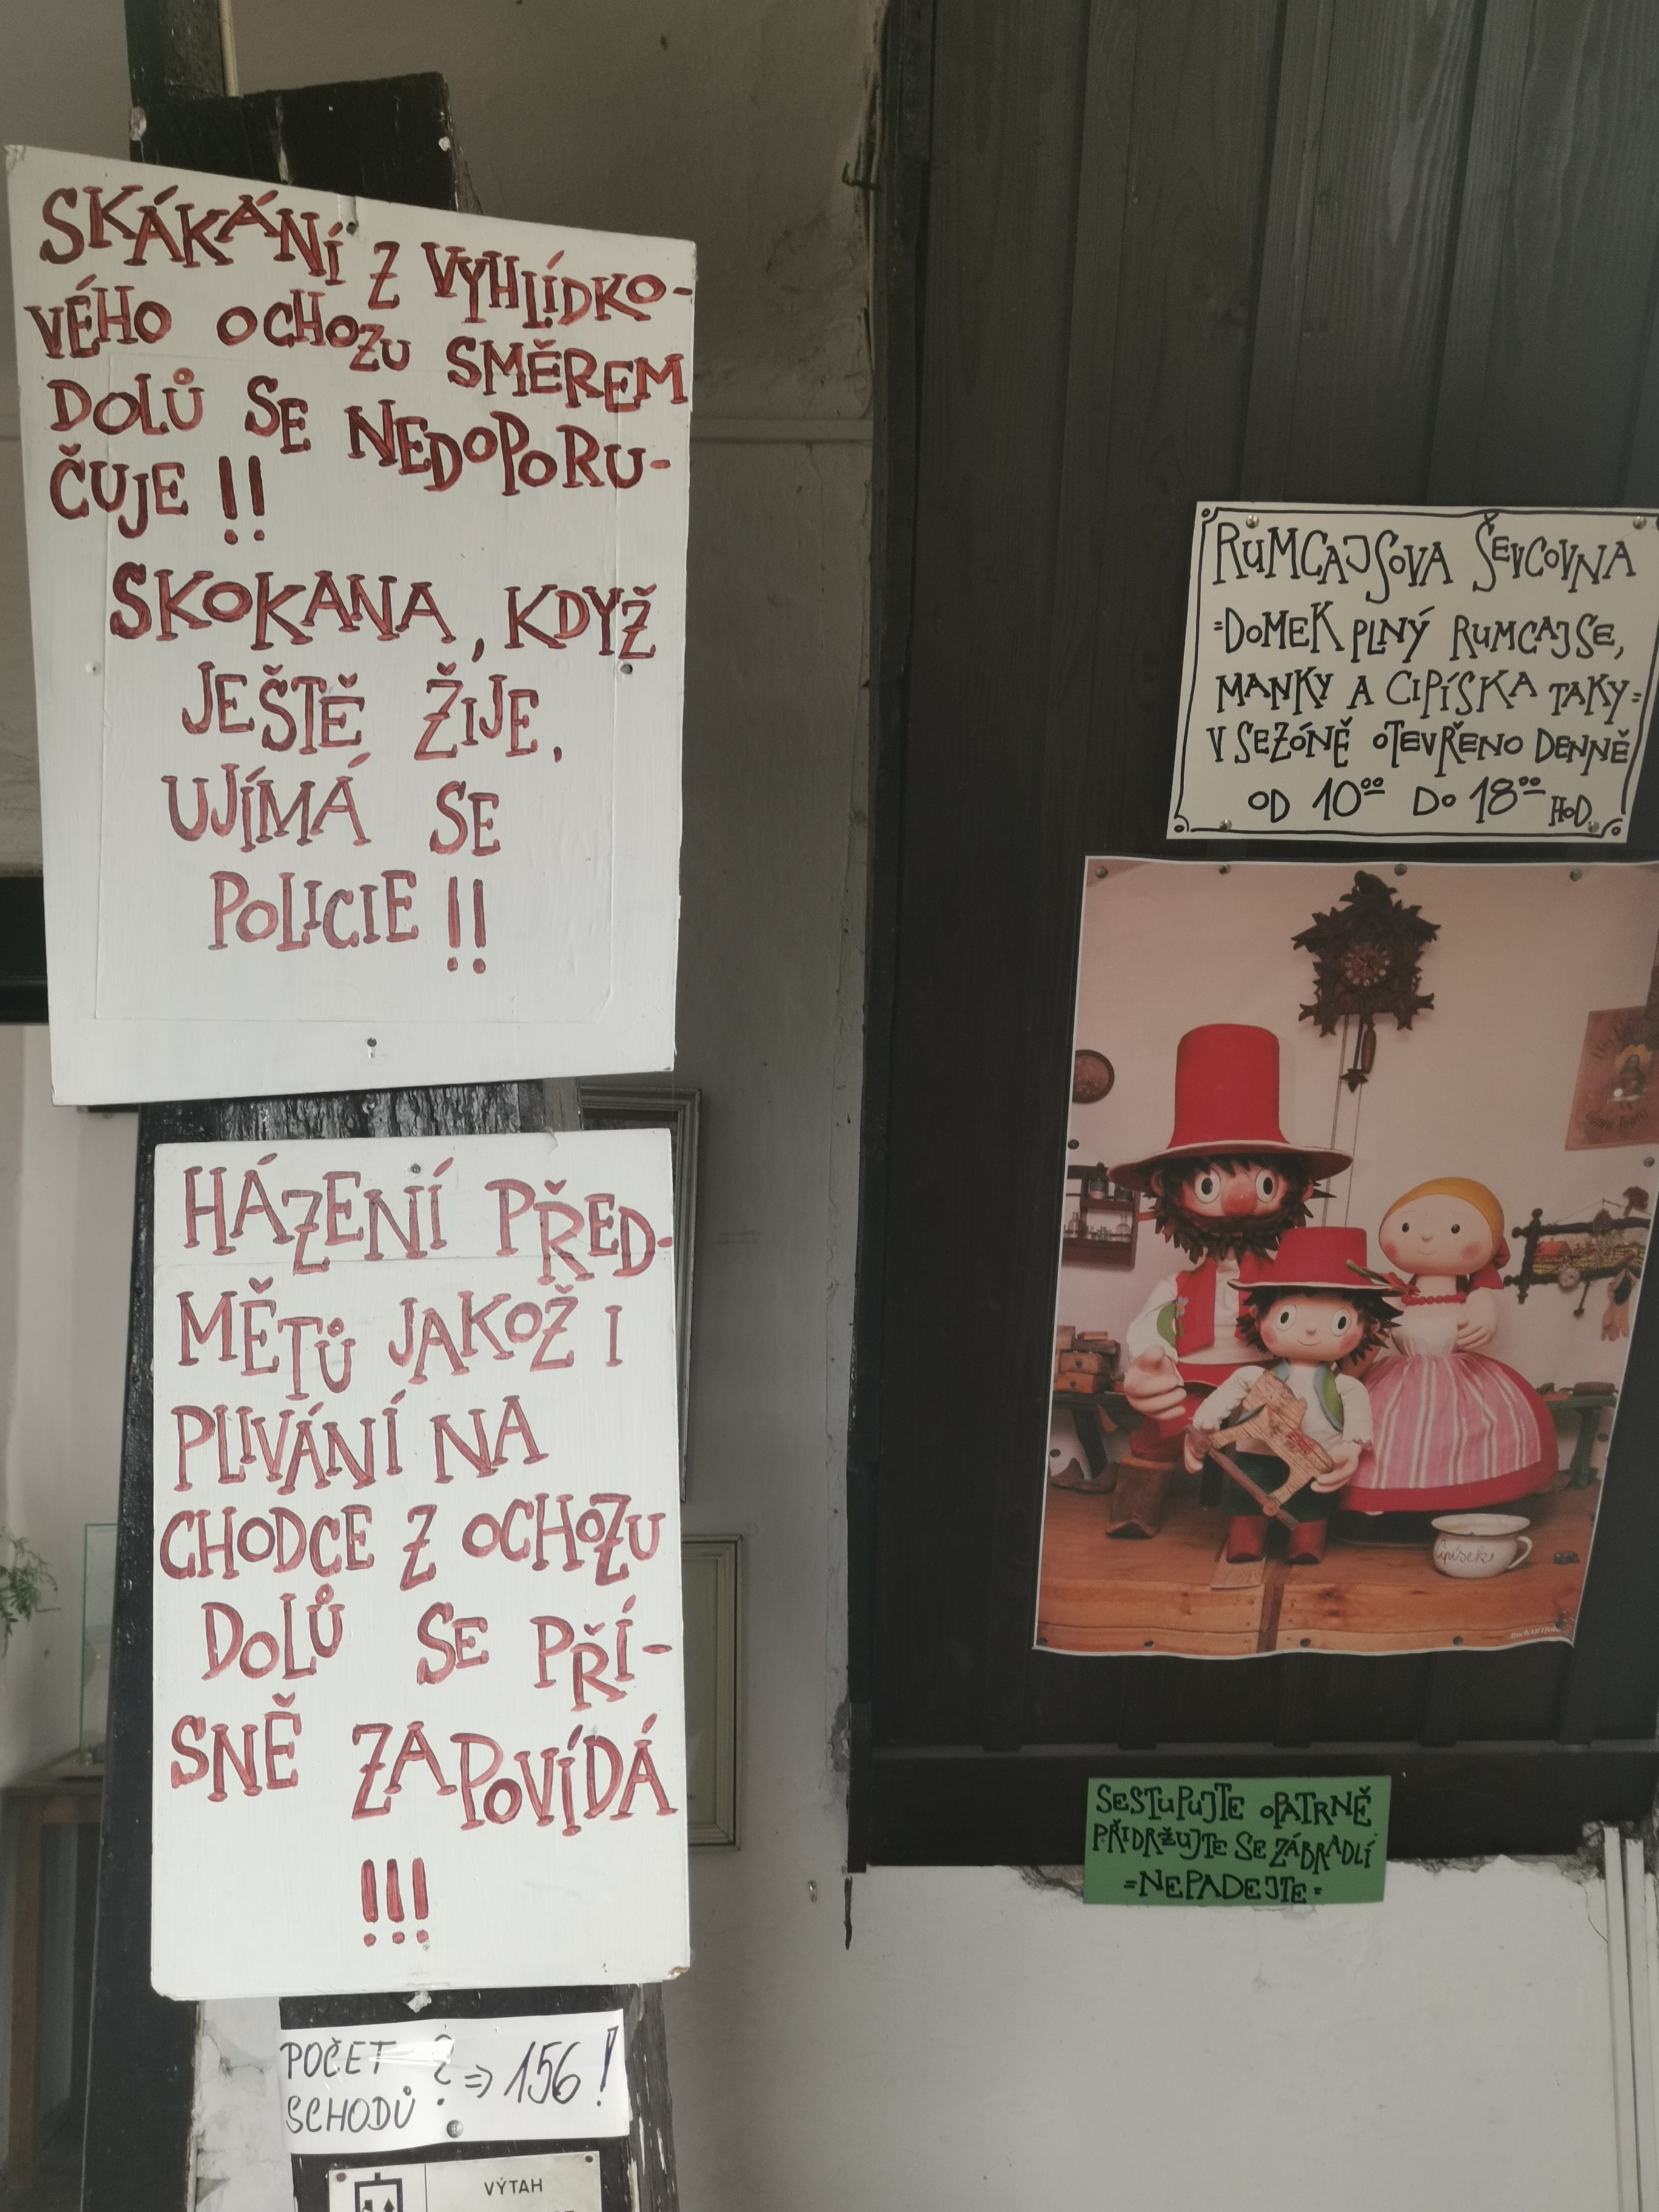 SKÁKÁNÍ Z VYHLÍDKO-
VÉHO OCHOZU SMĚREM
DOLŮ SE NEDOPORU-
ČUJE !!
SKOKANA, KDYŽ
JEŠTĚ ŽIJE,
UJÍMÁ SE
POLICIE !!
HÁZENÍ PŘED-
MĚTŮ JAKOŽ I
PLIVÁNÍ NA
CHODCE Z OCHOZU
DOLŮ SE PŘÍ-
SNĚ ZAPOVÍDÁ
!!!
POČET ? => 156!
SCHODŮ
VÝTAH
RUMCAJSOVA ŠEVCOVNA
=DOMEK PLNÝ RUMCAJSE,
MANKY A CIPÍSKA TAKY=
V SEZÓNĚ OTEVŘENO DENNĚ
OD 10⁰⁰ DO 18⁰⁰ HOD.
Cipísek
SESTUPUJTE OPATRNĚ
PŘIDRŽUJTE SE ZÁBRADLÍ
=NEPADEJTE=